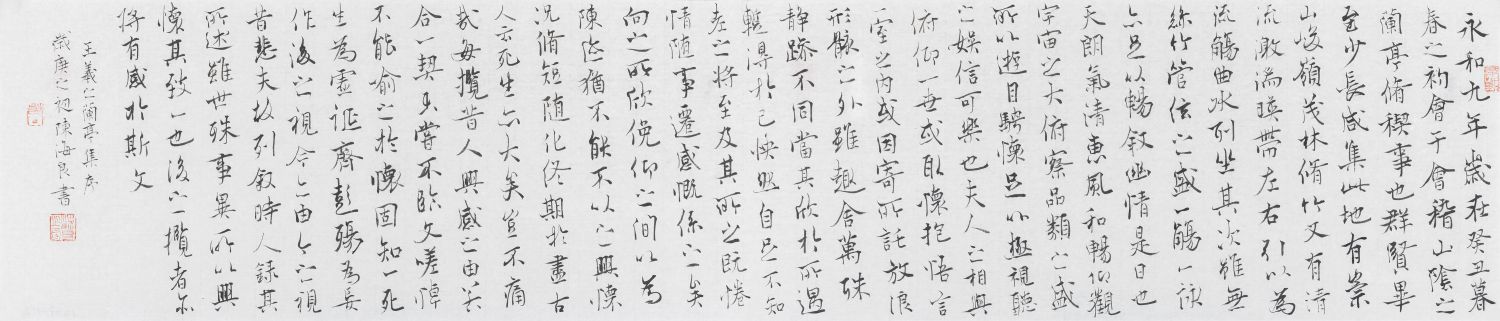 永和九年歲在癸丑暮
春之初會于會稽山陰之
蘭亭脩稧事也群賢畢
至少長咸集此地有崇
山峻嶺茂林脩竹又有清
流激湍暎帶左右引以為
流觴曲水列坐其次雖無
絲竹管弦之盛一觴一詠
亦足以暢敘幽情是日也
天朗氣清惠風和暢仰觀
宇宙之大俯察品類之盛
所以遊目騁懷足以極視聽
之娛信可樂也夫人之相與
俯仰一世或取懷抱悟言
一室之内或因寄所託放浪
形骸之外雖趣舍萬殊
靜躁不同當其欣於所遇
蹔得於己怏然自足不知
老之將至及其所之既惓
情随事遷感慨係之矣
向之所欣俛仰之間以為
陳迹猶不能不以之興懷
況脩短随化終期於盡古
人云死生亦大矣豈不痛
哉每攬昔人興感之由若
合一契未嘗不臨文嗟悼
不能喻之於懷固知一死
生為虛誕齊彭殤為妄
作後之視今亦由今之視
昔悲夫故列敘時人錄其
所述雖世殊事異所以興
懷其致一也後之攬者亦
將有感於斯文
王羲之蘭亭集序
歲庚之初陳海良書